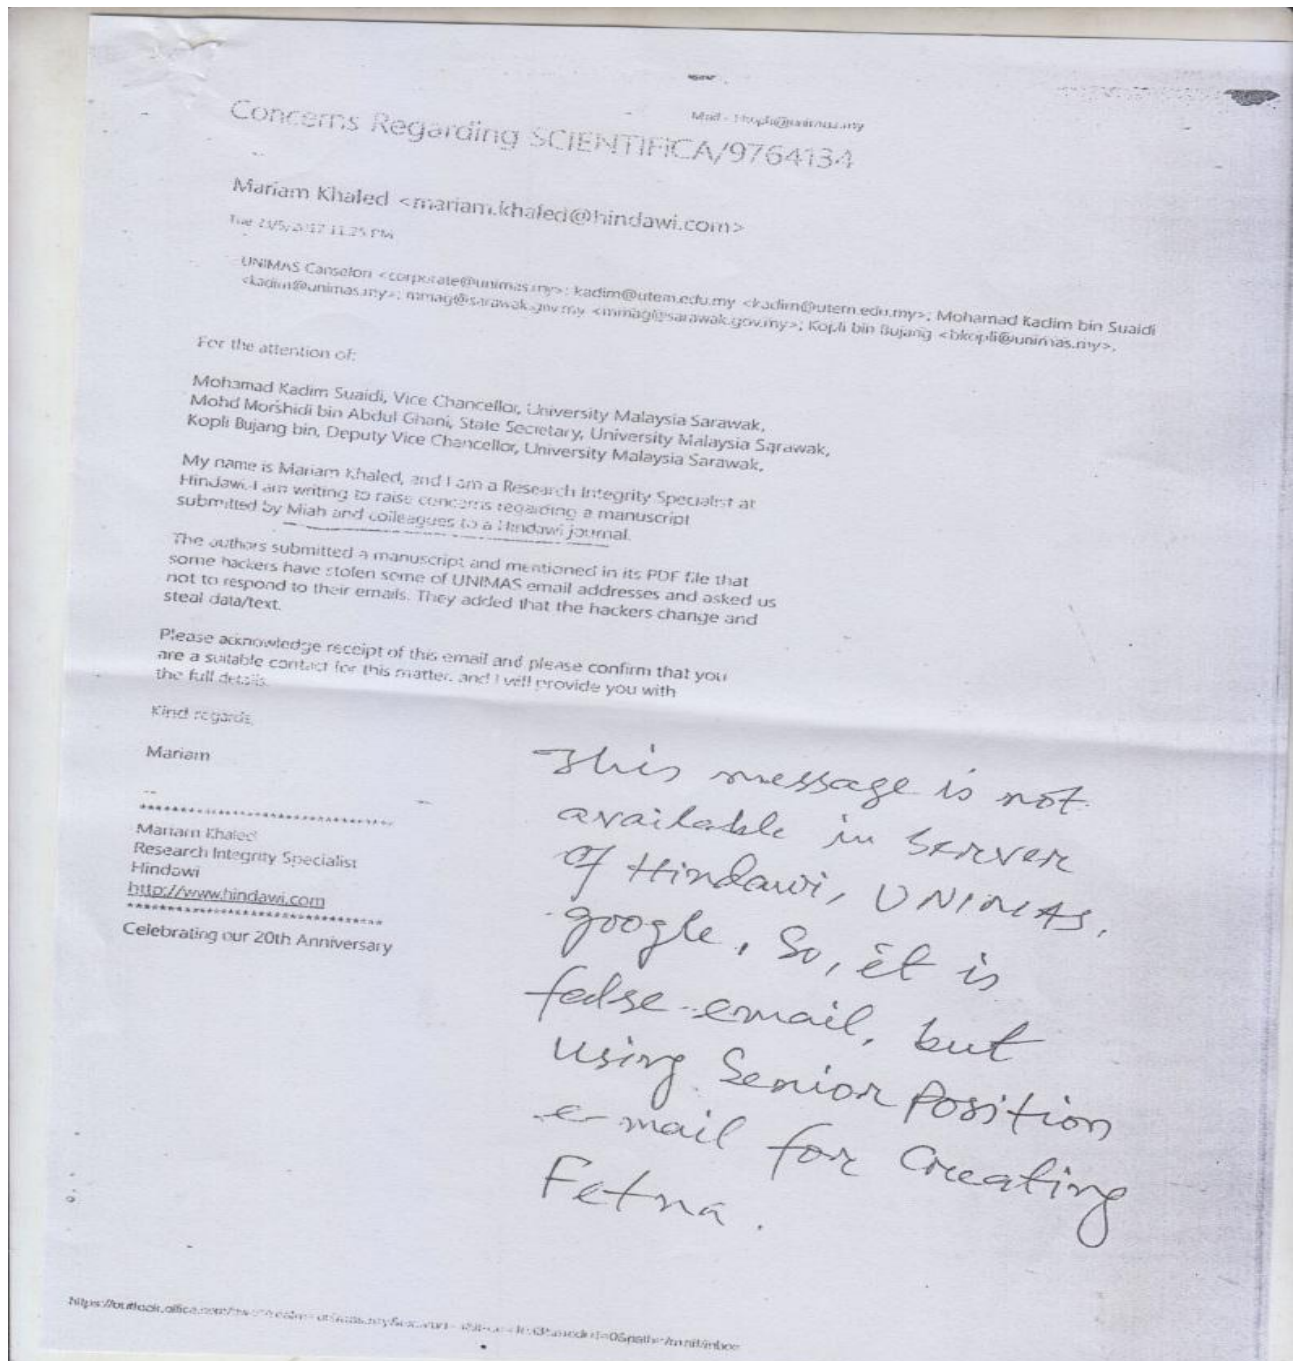 Concerns Regarding SCIENTIFICA/9764134
Mariam Khaled <mariam.khaled@hindawi.com>
11:25 PM
UNIMAS Canselori <corporate@unimas.my>; kadim@utem.edu.my <kadim@utem.edu.my>; Mohamad Kadim bin Suaidi
<kadim@unimas.my>; mmag@sarawak.gov.my <mmag@sarawak.gov.my>; Kopli bin Bujang <bkopli@unimas.my>,
For the attention of:
Mohamad Kadim Suaidi, Vice Chancellor, University Malaysia Sarawak,
Mohd Morshidi bin Abdul Ghani, State Secretary, University Malaysia Sarawak,
Kopli Bujang bin, Deputy Vice Chancellor, University Malaysia Sarawak,
My name is Mariam Khaled, and I am a Research Integrity Specialist at
Hindawi. I am writing to raise concerns regarding a manuscript
submitted by Miah and colleagues to a Hindawi journal.
The authors submitted a manuscript and mentioned in its PDF file that
some hackers have stolen some of UNIMAS email addresses and asked us
not to respond to their emails. They added that the hackers change and
steal data/text.
Please acknowledge receipt of this email and please confirm that you
are a suitable contact for this matter, and I will provide you with
the full details.
Kind regards,
Mariam
--
********************************
Mariam Khaled
Research Integrity Specialist
Hindawi
http://www.hindawi.com
********************************
Celebrating our 20th Anniversary
This message is not
available in Server
of Hindawi, UNIMAS,
google, So, it is
false email, but
using Senior Position
e-mail for Creating
Fetna.